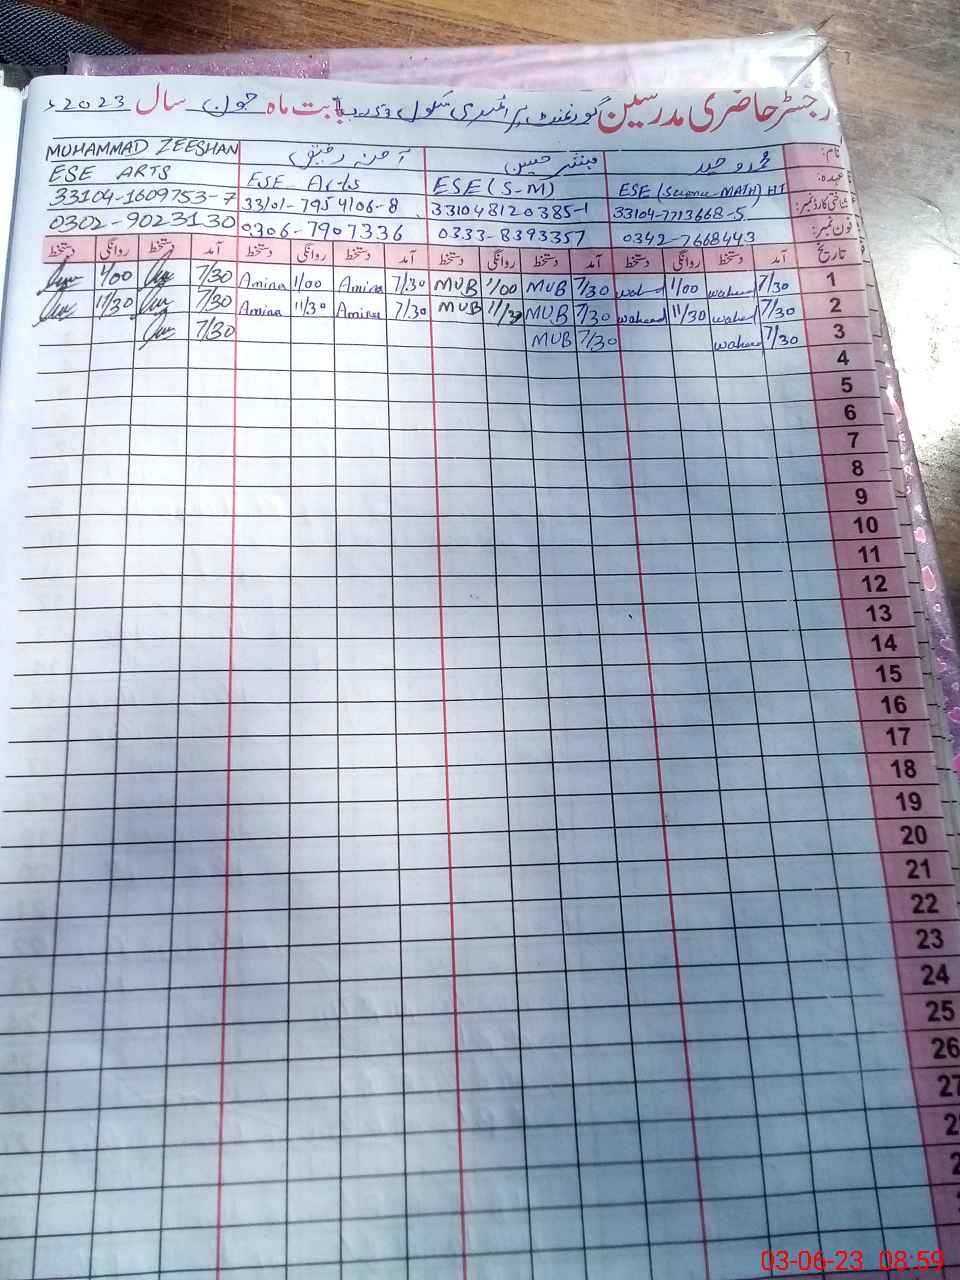 رجسٹر حاضری مدرسین گورنمنٹ پرائمری سکول بابت ماہ جون سال 2023ء
نام: محمد وحید مبشر حسین آمنہ رفیق MUHAMMAD ZEESHAN
عہدہ: ESE (Science-MATH) HT ESE (S-M) ESE Arts ESE ARTS
شناختی کارڈ نمبر: 33104-7713668-5 331048120385-1 33101-7954106-8 33104-1609753-7
فون نمبر: 0342-7668443 0333-8393357 0306-7907336 0302-9023130
تاریخ آمد دستخط روانگی دستخط آمد دستخط روانگی دستخط آمد دستخط روانگی دستخط آمد دستخط روانگی دستخط
1 7/30 waheed 1/00 wahed 7/30 MUB 1/00 MUB 7/30 Amina 1/00 Amina 7/30 1/00
2 7/30 wahed 11/30 waheed 7/30 MUB 11/30 MUB 7/30 Amina 11/30 Amina 7/30 11/30
3 7/30 waheed 7/30 MUB 7/30
4
5
6
7
8
9
10
11
12
13
14
15
16
17
18
19
20
21
22
23
24
25
26
27
03-06-23 08:59